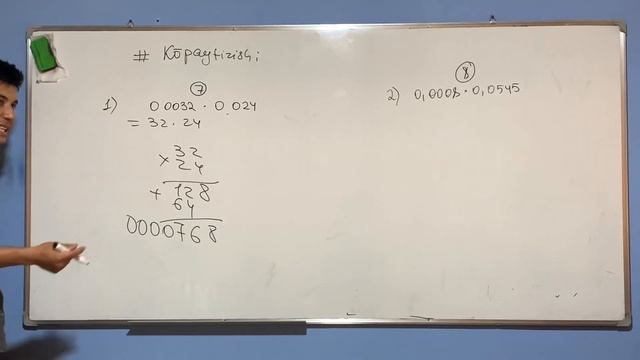 # Ko'paytirish:
7
1) 0 0032 · 0,024
= 32 · 24
32
× 24
+ 128
64
0000768
8
2) 0,0008 · 0,0545